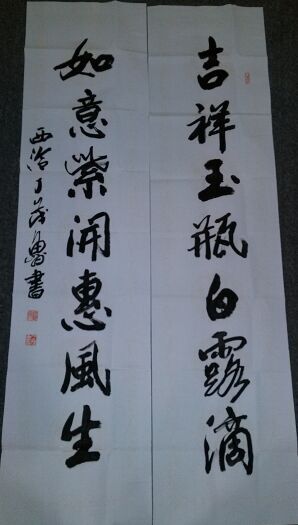 吉祥玉瓶白露滴
如意紫開惠風生
西泠丁茂魯書